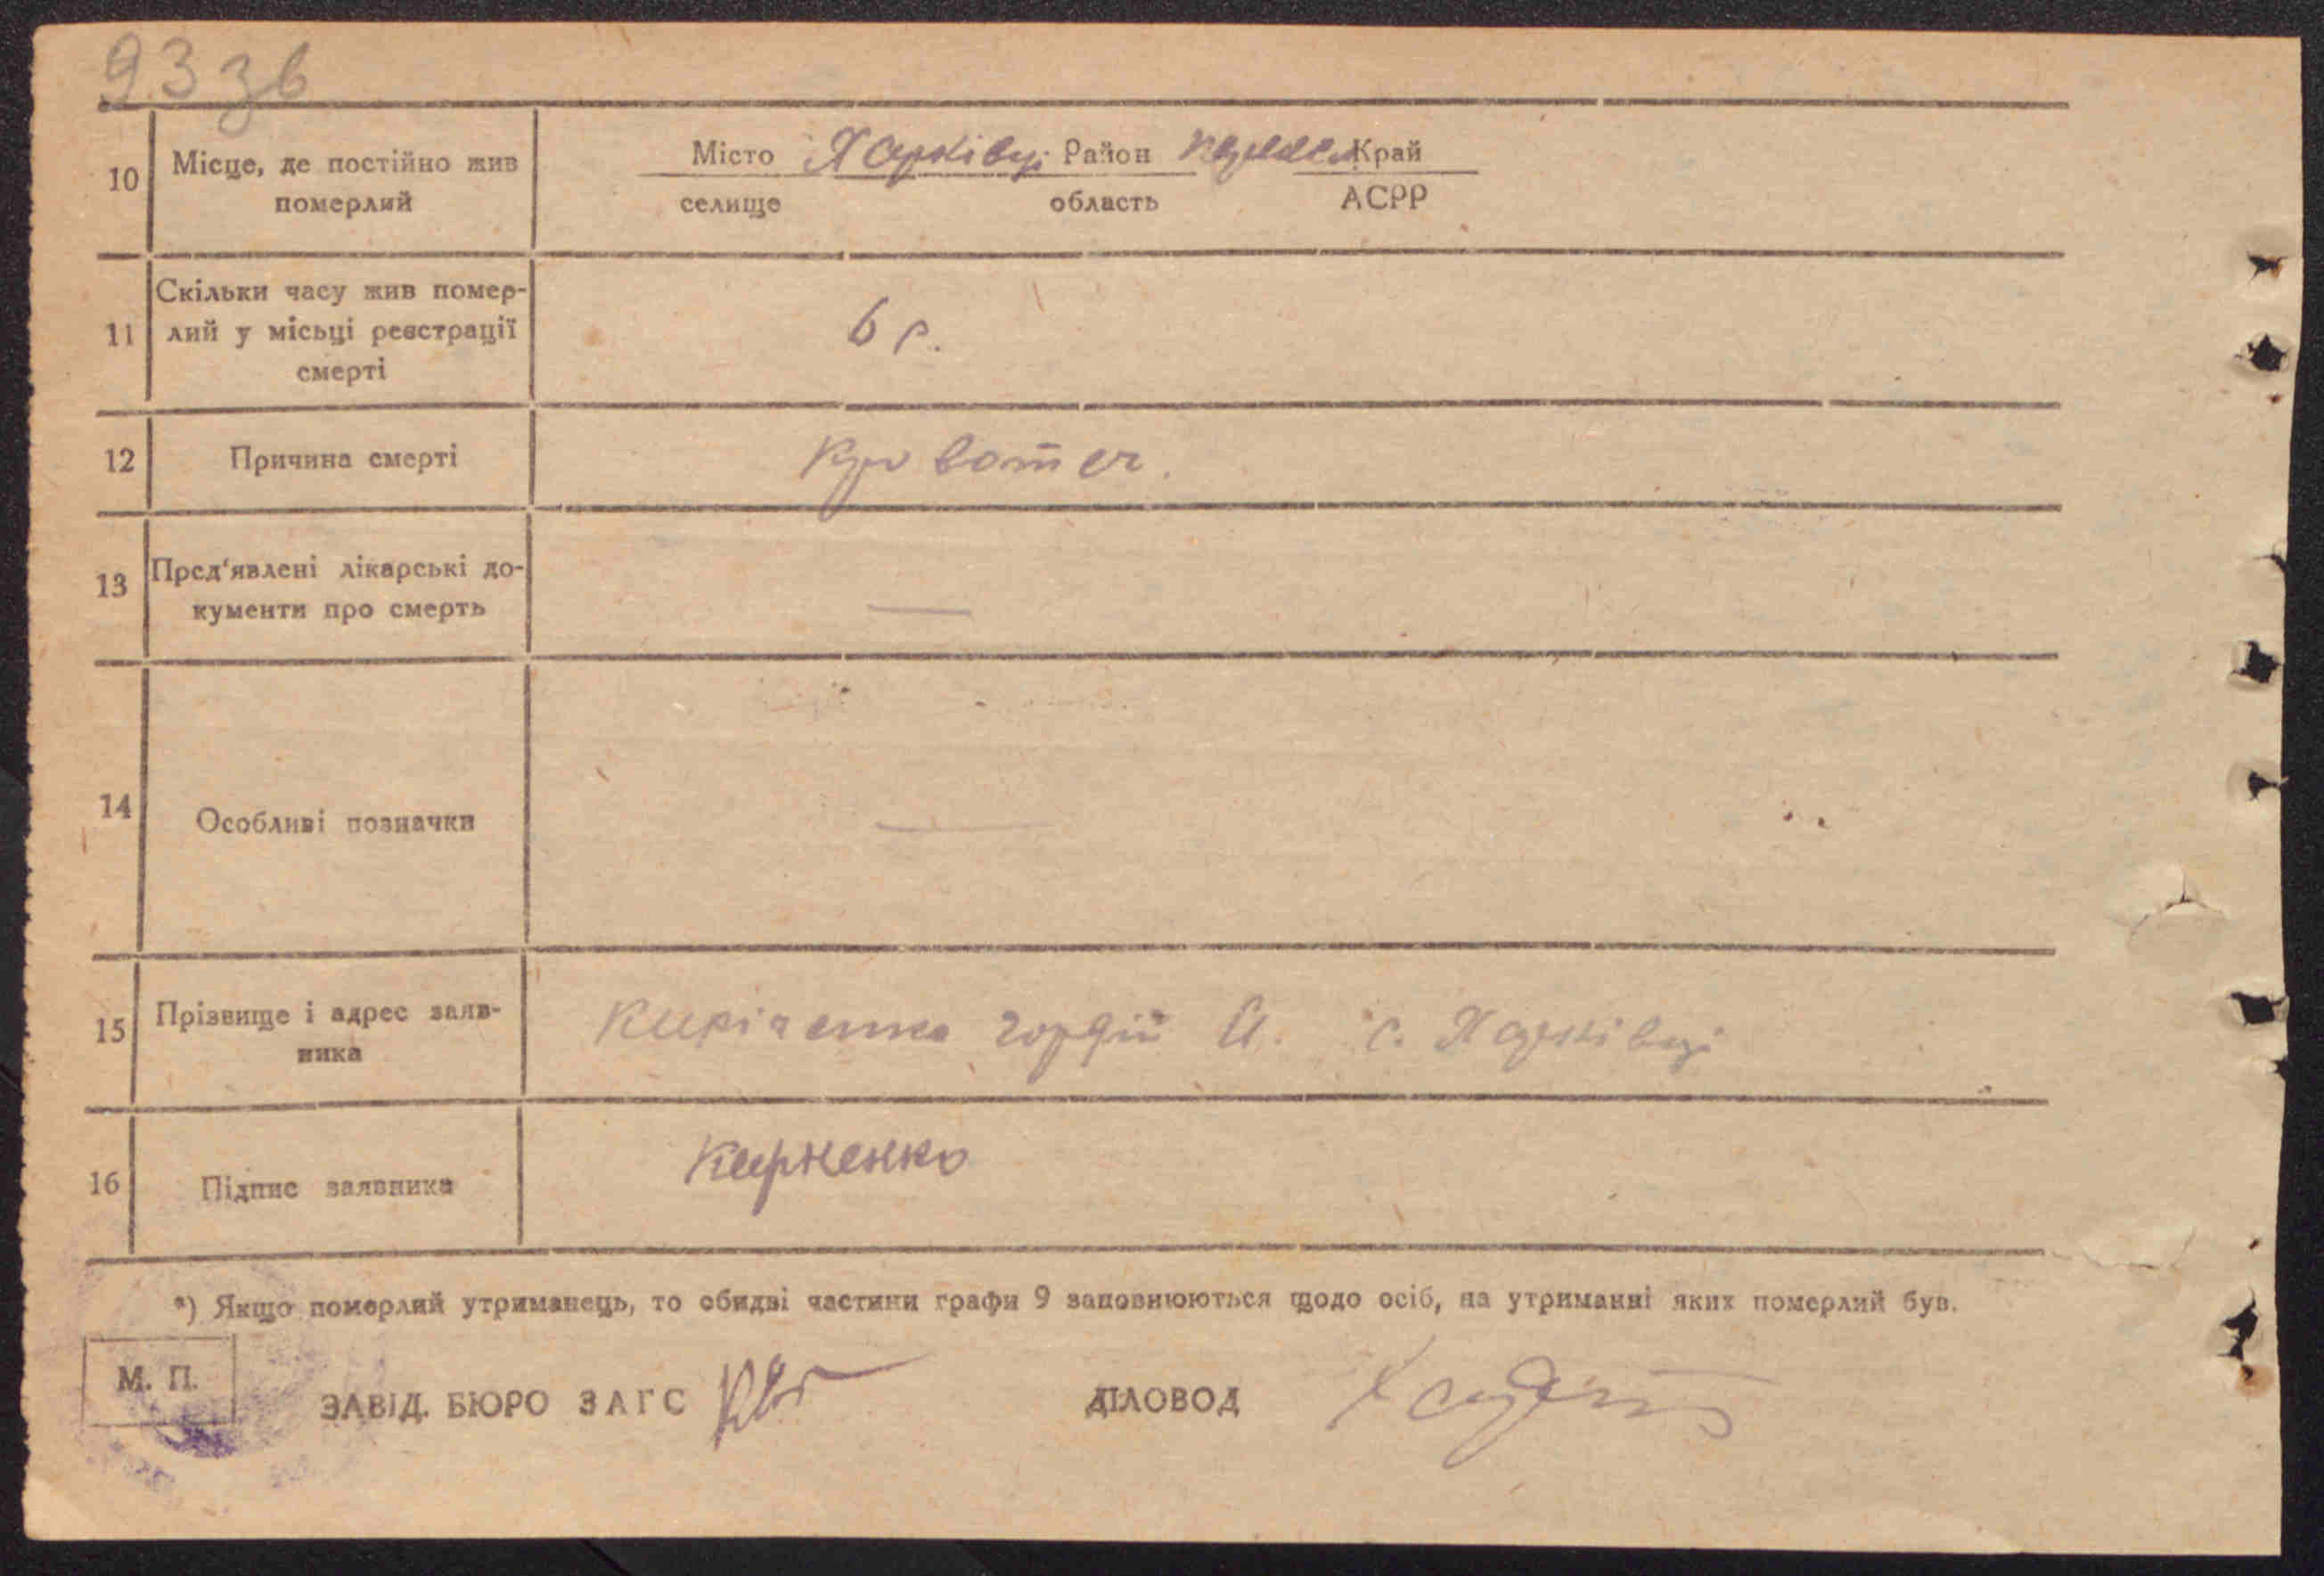 93 зв
10 Місце, де постійно жив померлий
Місто Харківці Район Край
селище область АСРР
11 Скільки часу жив помер-
лий у місьці реєстрації
смерті
6 р.
12 Причина смерті Кровотеч.
13 Пред'явлені лікарські до-
кументи про смерть
—
14 Особливі позначки —
15 Прізвище і адрес заяв-
ника
Гордій И. с. Харківці
16 Підпис заявника
*) Якщо померлий утриманець, то обидві частини графи 9 заповнюються щодо осіб, на утриманні яких померлий був.
М. П.
ЗАВІД. БЮРО ЗАГС ДІЛОВОД